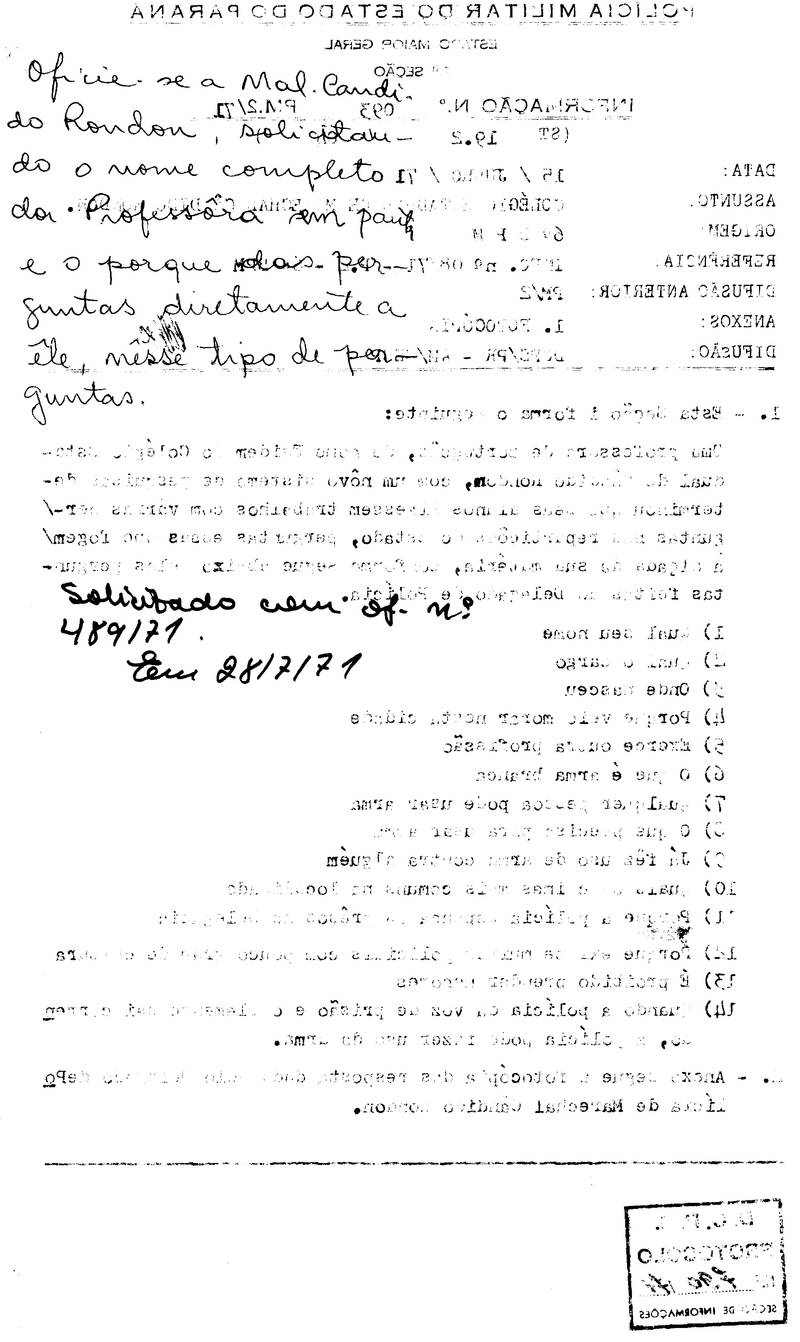 POLÍCIA MILITAR DO ESTADO DO PARANÁ
ESTADO MAIOR GERAL
SEÇÃO
INFORMAÇÃO N.º 093 P.M.2/71
Oficie-se a Mal. Candi-
do Rondon, solicitan-
do o nome completo
da Professora em pauta
e o porque das per-
guntas diretamente a
êle, nesse tipo de per-
guntas.
DATA: 15 / JULHO / 71
ASSUNTO: COLÉGIO
ORIGEM:
REFERÊNCIA:
DIFUSÃO ANTERIOR: PM/2
ANEXOS: 1. FOTOCÓPIA
DIFUSÃO:
1. - Esta Seção informa o seguinte:
Uma professora de português, de nome do Colégio Esta-
dual de Cândido Rondon, com um nôvo sistema de pesquisas de-
terminou que seus alunos fizessem trabalhos com várias per-/
guntas nas repartições do estado, perguntas essas que fogem/
a alçada de sua matéria, conforme segue abaixo pelas pergun-
tas feitas ao Delegado de Polícia.
Solicitado com of. nº
489/71.
Em 28/7/71
1) Qual seu nome
2) qual o cargo
3) Onde nasceu
4) Porque veio morar nesta cidade
5) Exerce outra profissão
6) O que é arma branca
7) qualquer pessoa pode usar arma
8) O que precisa para usar arma
9) Já fêz uso de arma contra alguém
10) quais os crimes mais comuns na localidade
11) Porque a polícia espanca os prêsos na delegacia
12) Porque existe muitos policiais com pouco grau de cultura
13) É proibido prender menores
14) Quando a polícia da voz de prisão e o elemento sai corren
do, a polícia pode fazer uso da arma.
2. - Anexo segue a fotocópia das resposta dada pelo de Po
lícia de Marechal Cândido Rondon.
PROTOCOLO
SEÇÃO DE INFORMAÇÕES